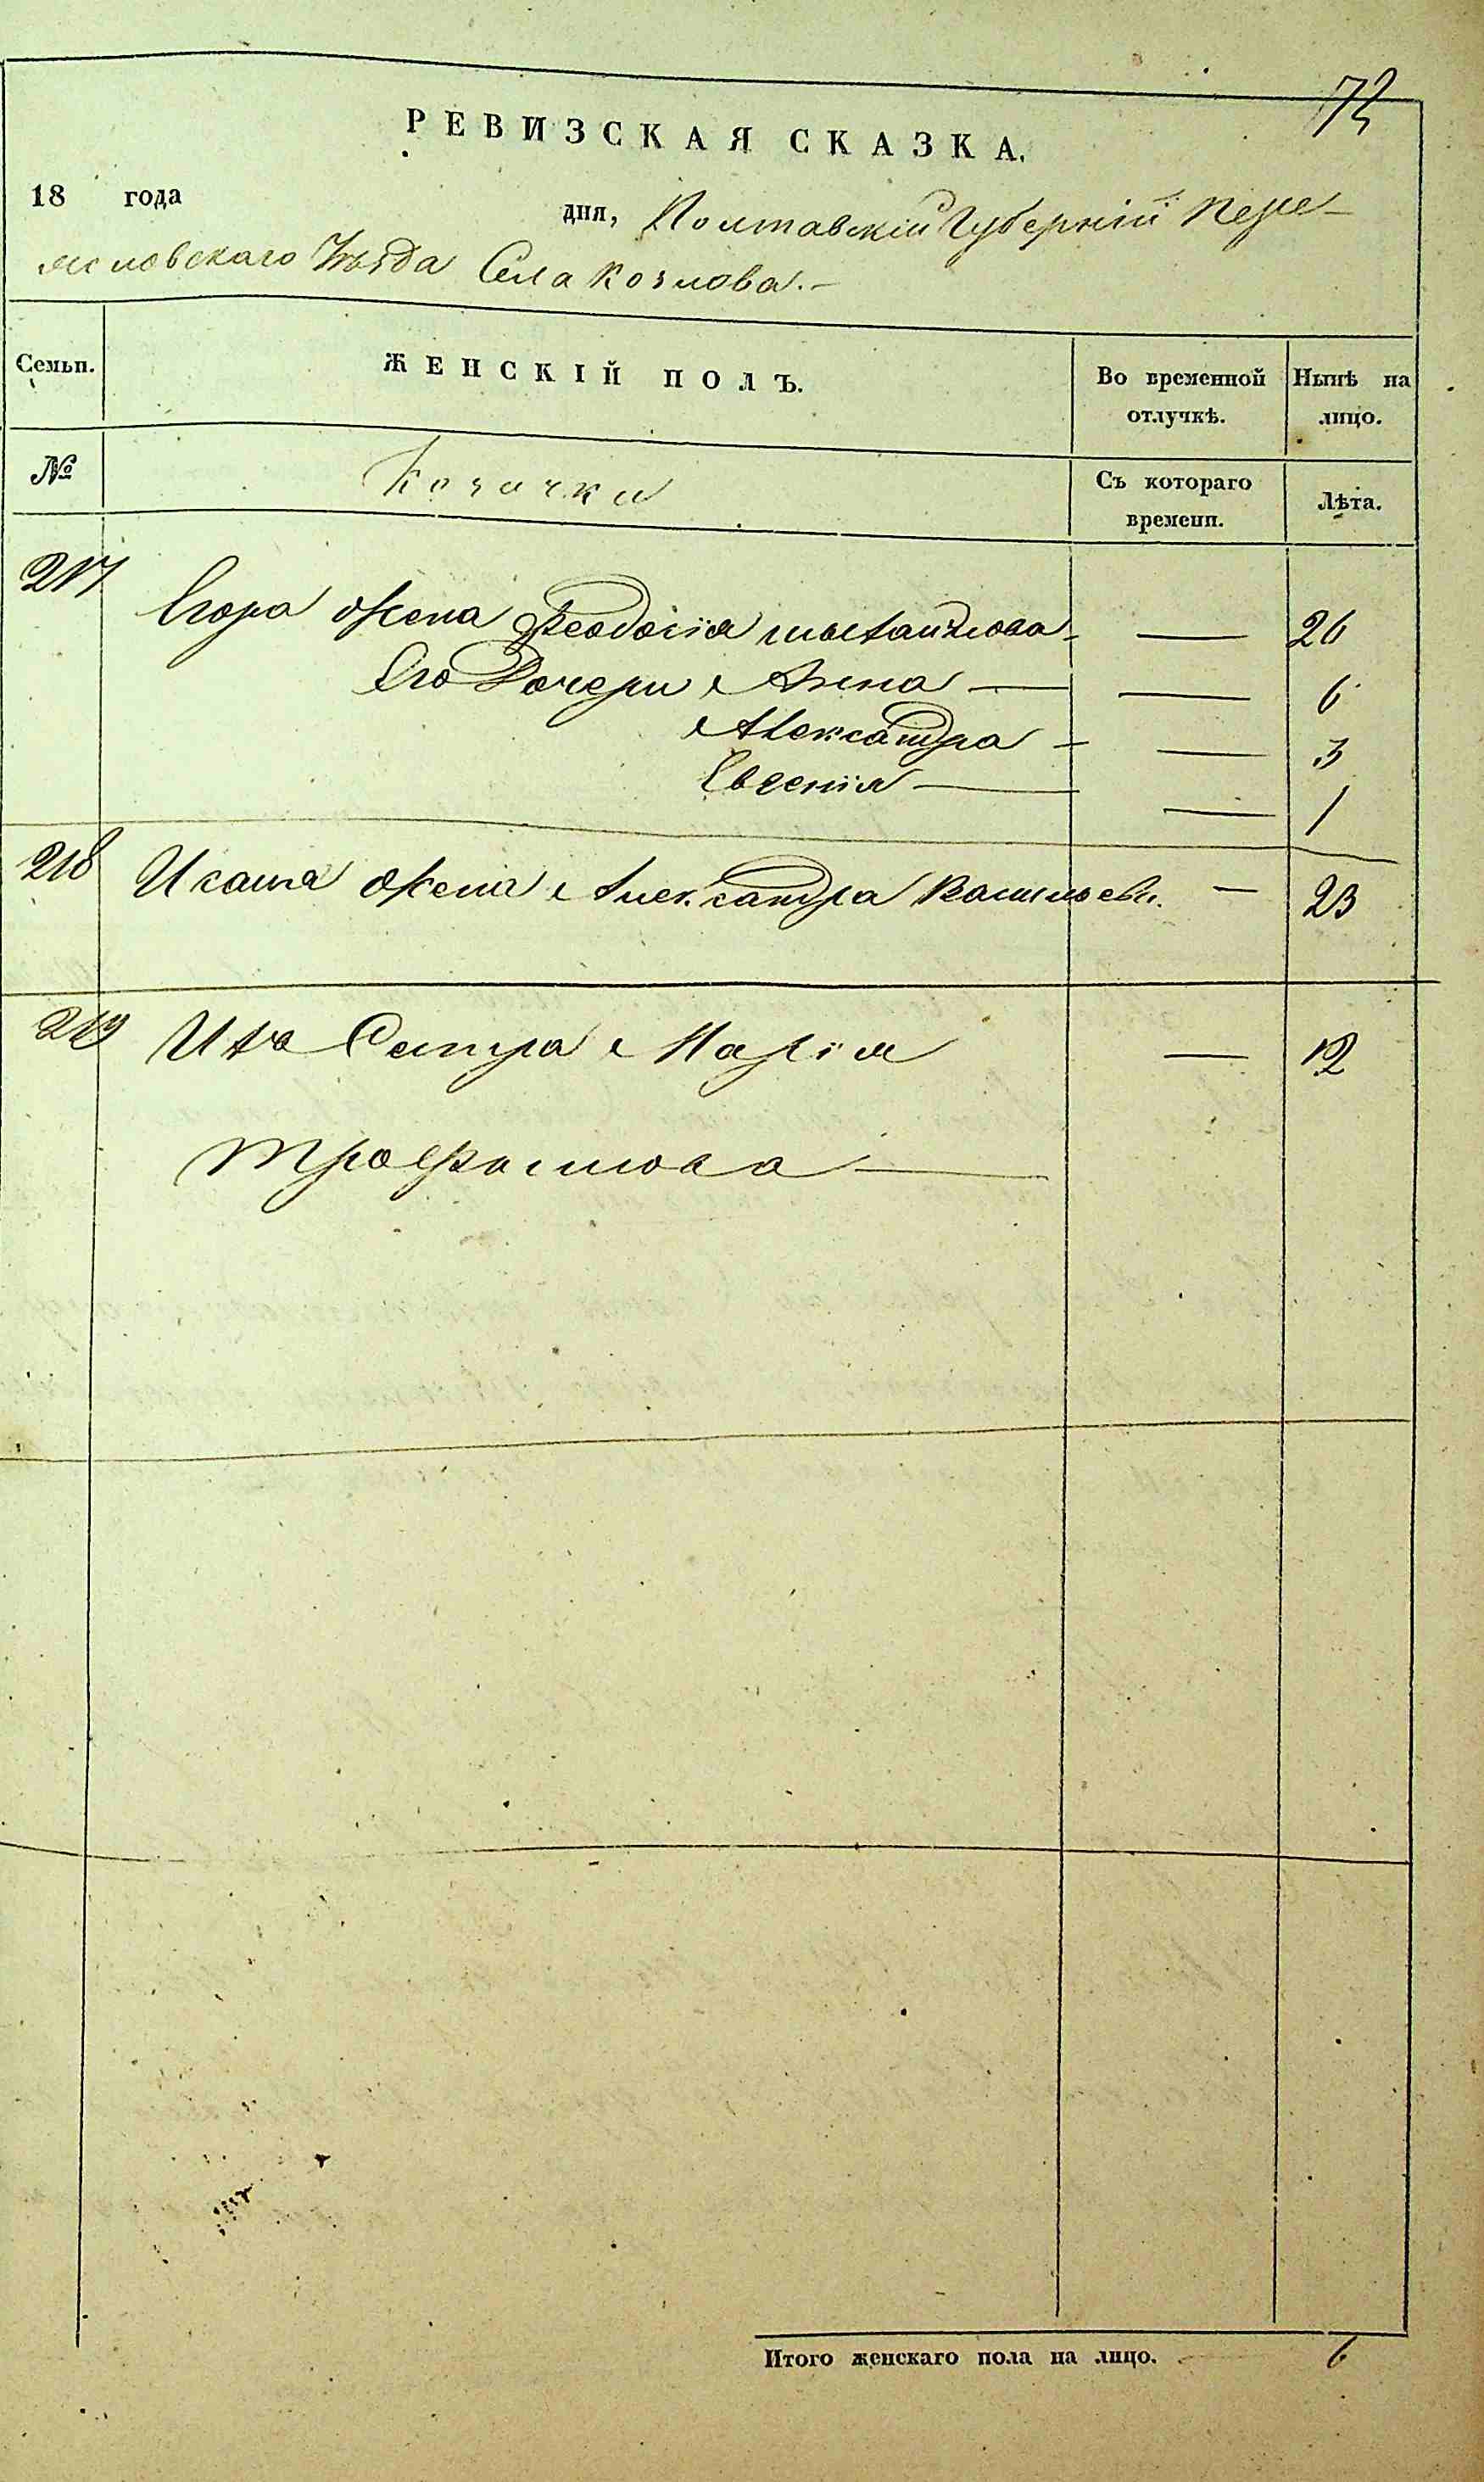 73
РЕВИЗСКАЯ СКАЗКА.
18 года дня, Полтавскій Губерніи Пере-
яславскаго Уѣзда Села Козлова.-
Семьи. ЖЕНСКІЙ ПОЛЪ. Во временной отлучкѣ. Нынѣ на лицо.
№ Козачки Съ котораго времени. Лѣта.
217 Егора жена Феодосія Михайлова - — 26
Его Дочери Анна — — 6
Александра - — 3
Евгенія — — 1
218 Исаія жена Александра Васильева. — 23
219 Ихъ Сестра Марія — 12
Трофимова —
Итого женскаго пола на лицо. 6